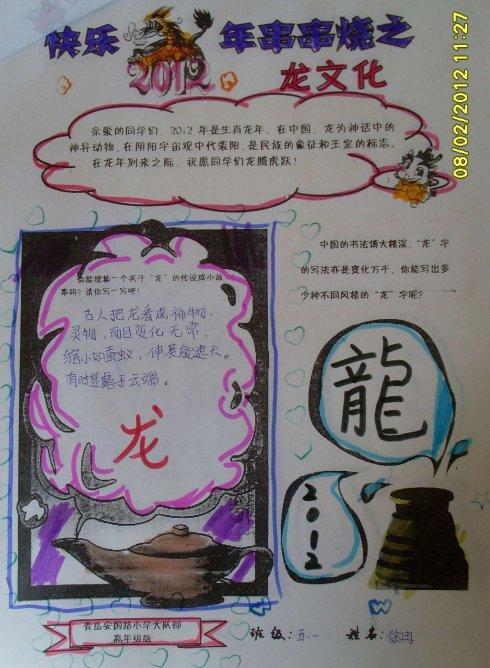 快乐 年串串烧之
2012 龙文化
08/02/2012 11:27
亲爱的同学们，2012 年是生肖龙年。在中国，龙为神话中的
神异动物，在阴阳宇宙观中代表阳，是民族的象征和王室的标志。
在龙年到来之际，祝愿同学们龙腾虎跃！
你能搜集一个关于“龙”的传说或小故
事吗？请你写一写吧！
古人把龙看成神物、
灵物，而且变化无常，
缩小如蚕蚁，伸展能遮天。
有时显露于云端。
龙
中国的书法博大精深，“龙”字
的写法亦是变化万千，你能写出多
少种不同风格的“龙”字呢？
龍
2012
青岛安国路小学大队部
高年级版
班级：五.一 姓名：徐冉